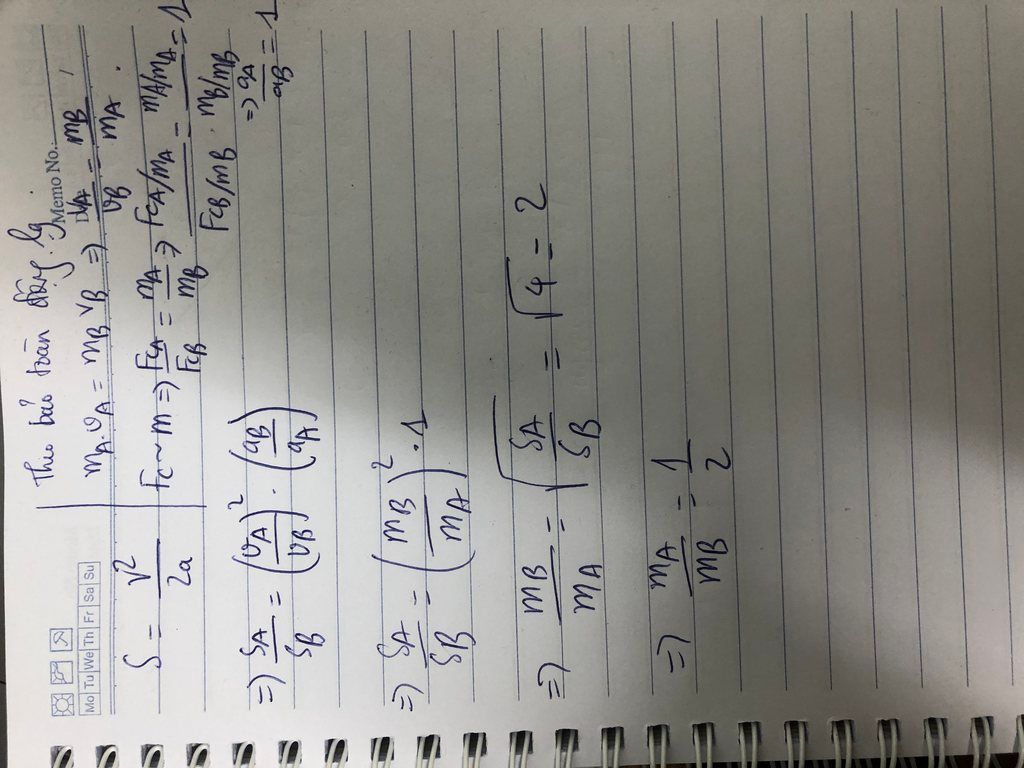 Memo No.
Mo Tu We Th Fr Sa Su
Theo bảo toàn động lg
m_A.v_A = m_B v_B => v_A/v_B = m_B/m_A
S = v²/2a
Fc ~ m => Fc_A/Fc_B = m_A/m_B => (Fc_A/m_A)/(Fc_B/m_B) = (m_A/m_A)/(m_B/m_B) = 1
=> a_A/a_B = 1
=> S_A/S_B = (v_A/v_B)² . (a_B/a_A)
=> S_A/S_B = (m_B/m_A)² . 1
=> m_B/m_A = √(S_A/S_B) = √4 = 2
=> m_A/m_B = 1/2